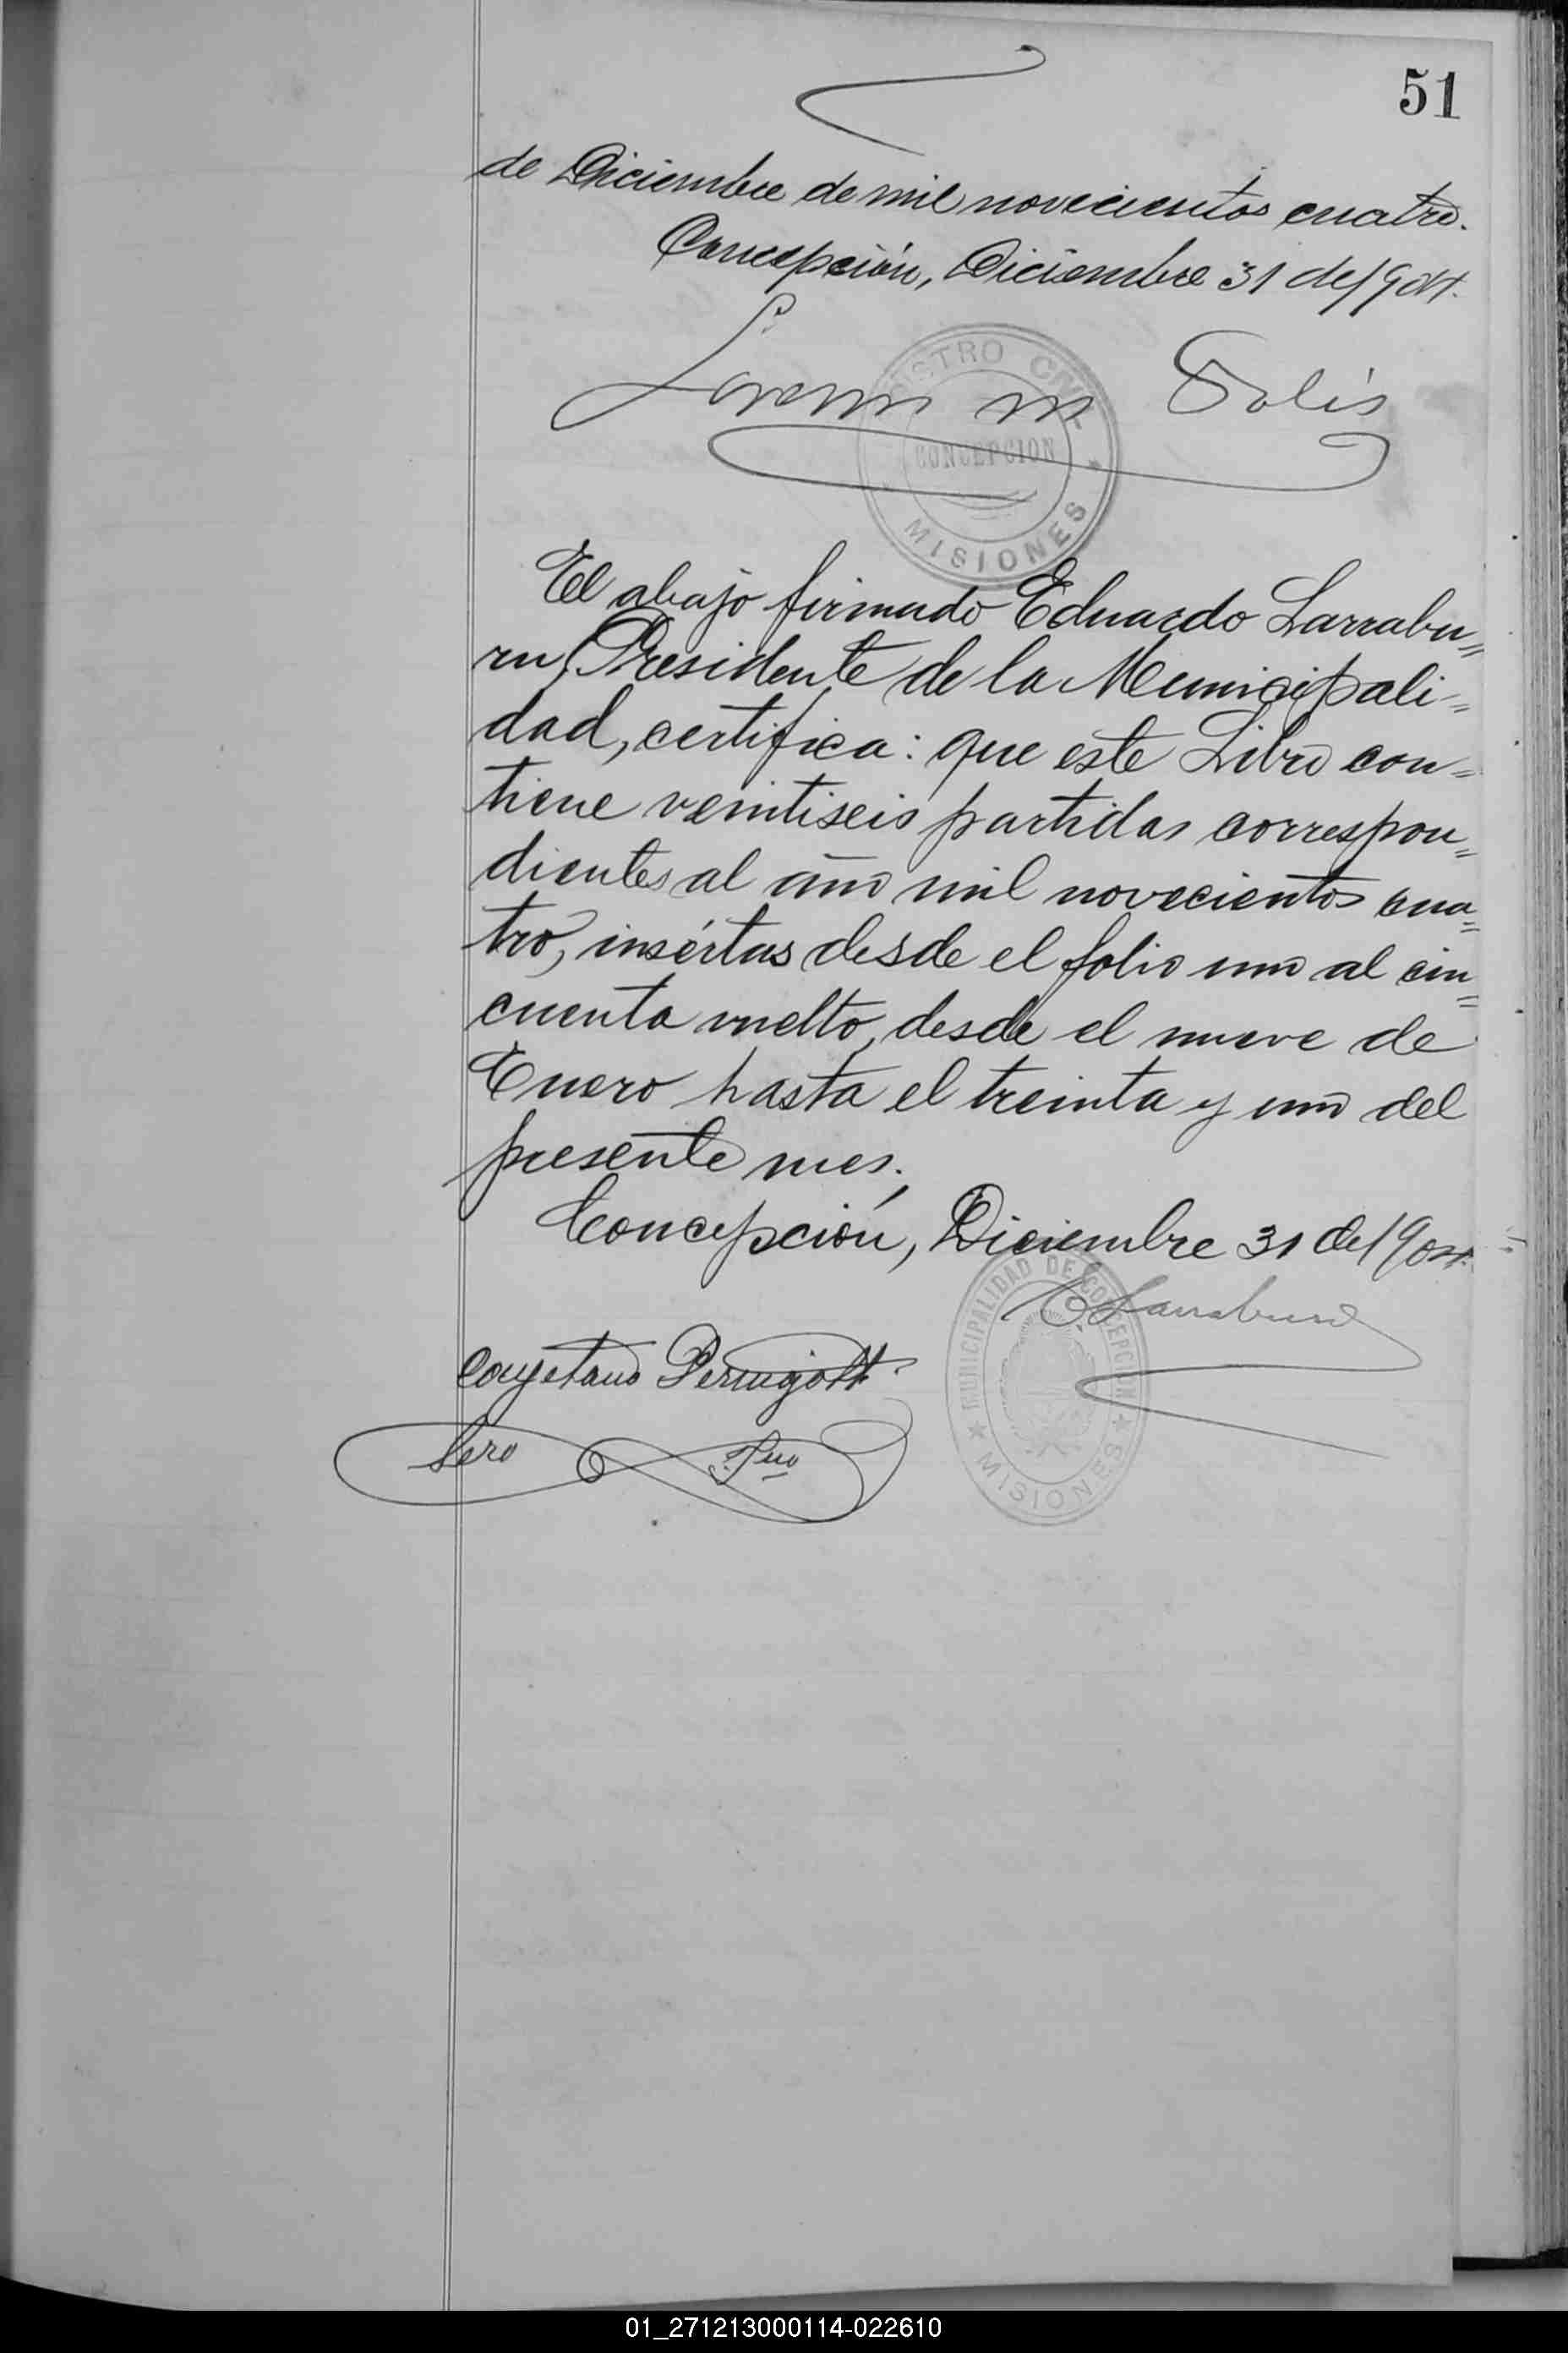 51
de Diciembre de mil novecientos cuatro.
Concepción, Diciembre 31 de 1904.
Lorenzo M Solis
REGISTRO CIVIL
CONCEPCION
MISIONES
El abajo firmado Eduardo Larrabu=
ru, Presidente de la Municipali=
dad, certifica: que este Libro con=
tiene veintiseis partidas correspon=
dientes al año mil novecientos cua=
tro, insértas desde el folio uno al cin=
cuenta vuelto, desde el nueve de
Enero hasta el treinta y uno del
presente mes.
Concepción, Diciembre 31 de 1904.
E. Larraburu
MUNICIPALIDAD DE CONCEPCION
MISIONES
Cayetano
01_271213000114-022610